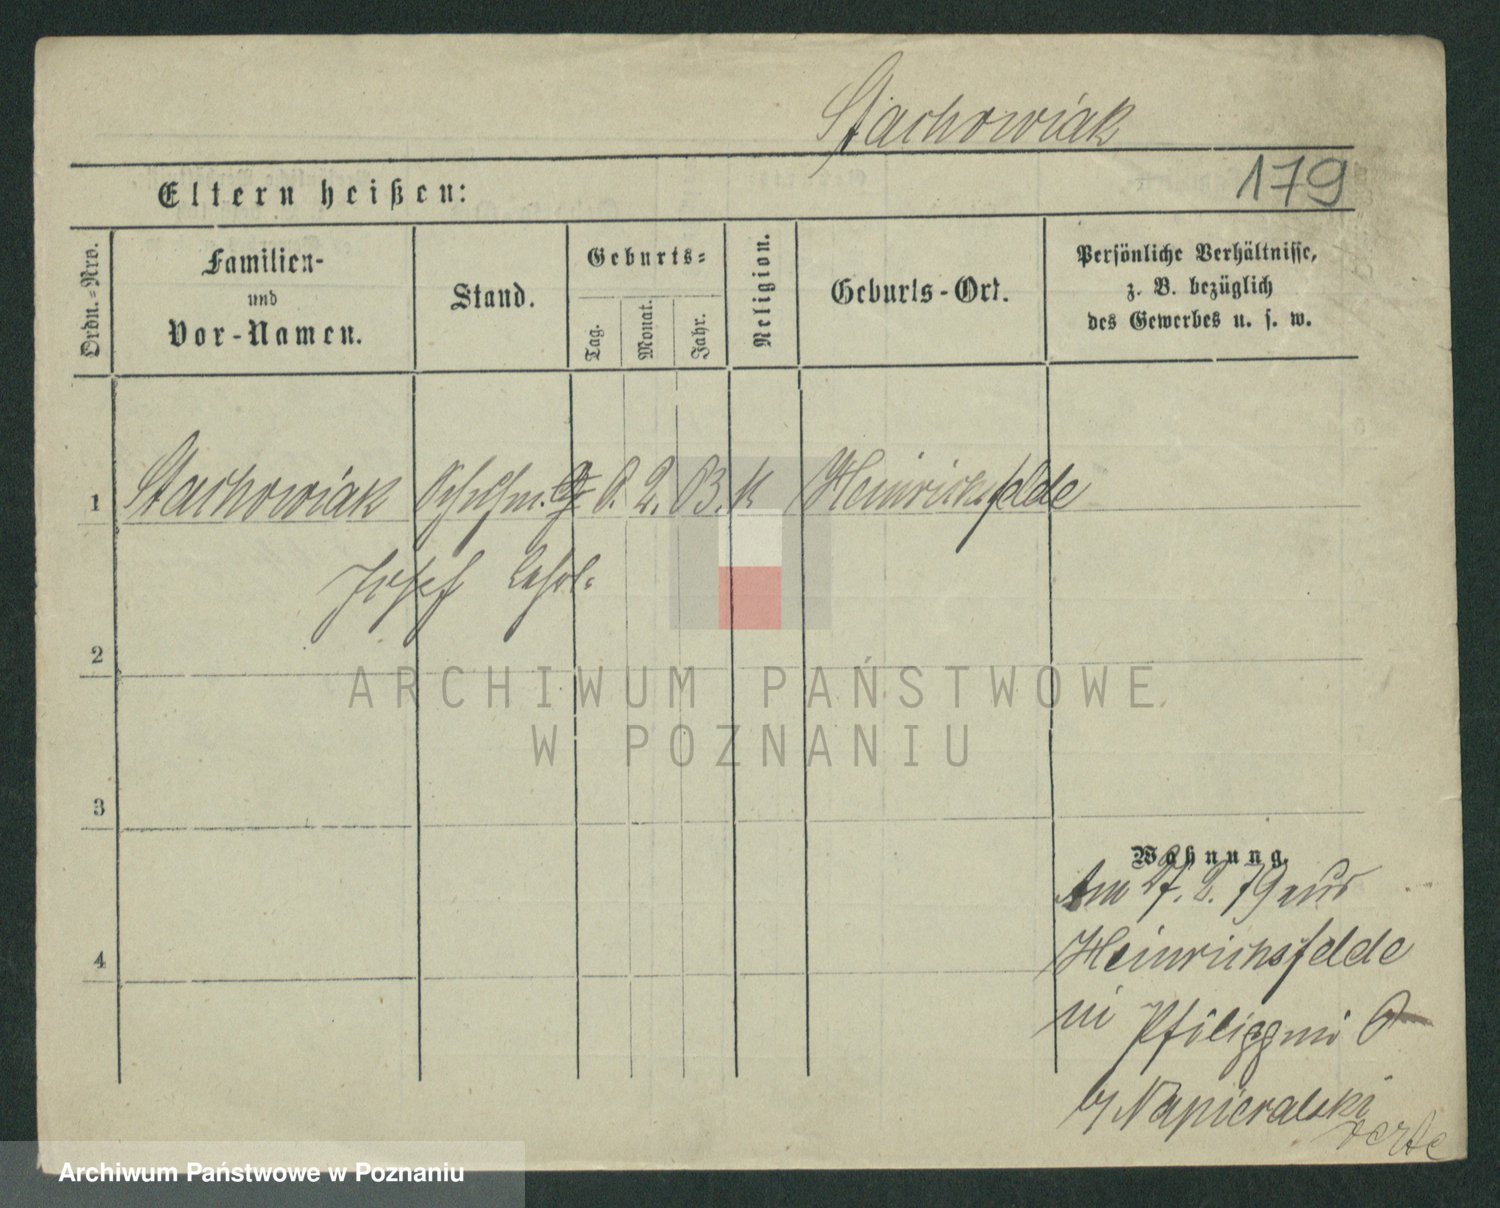 Stachowiak
179
Eltern heißen:
Ordn.-Nro.
Familien-
und
Vor-Namen.
Stand.
Geburts-
Tag.
Monat.
Jahr.
Religion.
Geburts-Ort.
Persönliche Verhältnisse,
z. B. bezüglich
des Gewerbes u. s. w.
1 Stachowiak 8. 2. 03. k Heinrichsfelde
Josef
2
ARCHIWUM PAŃSTWOWE
W POZNANIU
3
Wohnung.
Am 27. 2. 19 aus
Heinrichsfelde
4
in
b/ Napieralski
verte
Archiwum Państwowe w Poznaniu